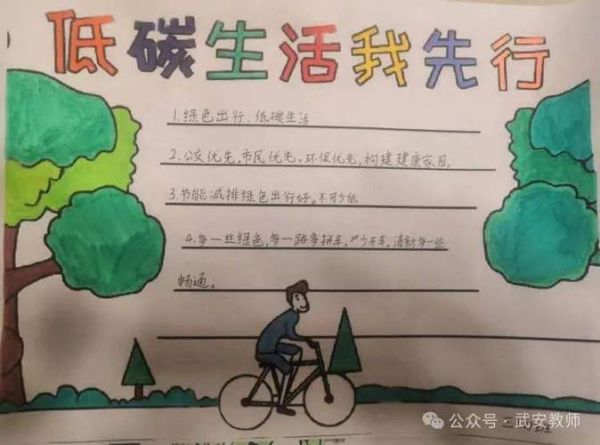 低碳生活我先行
1.绿色出行、低碳生活
2.公交优先,市民优先,环保优先,构建健康家园。
3.节能减排绿色出行好。不可少
4.多一些绿色,多一路多拼车,少开车,道多一些
畅通。
公众号·武安教师